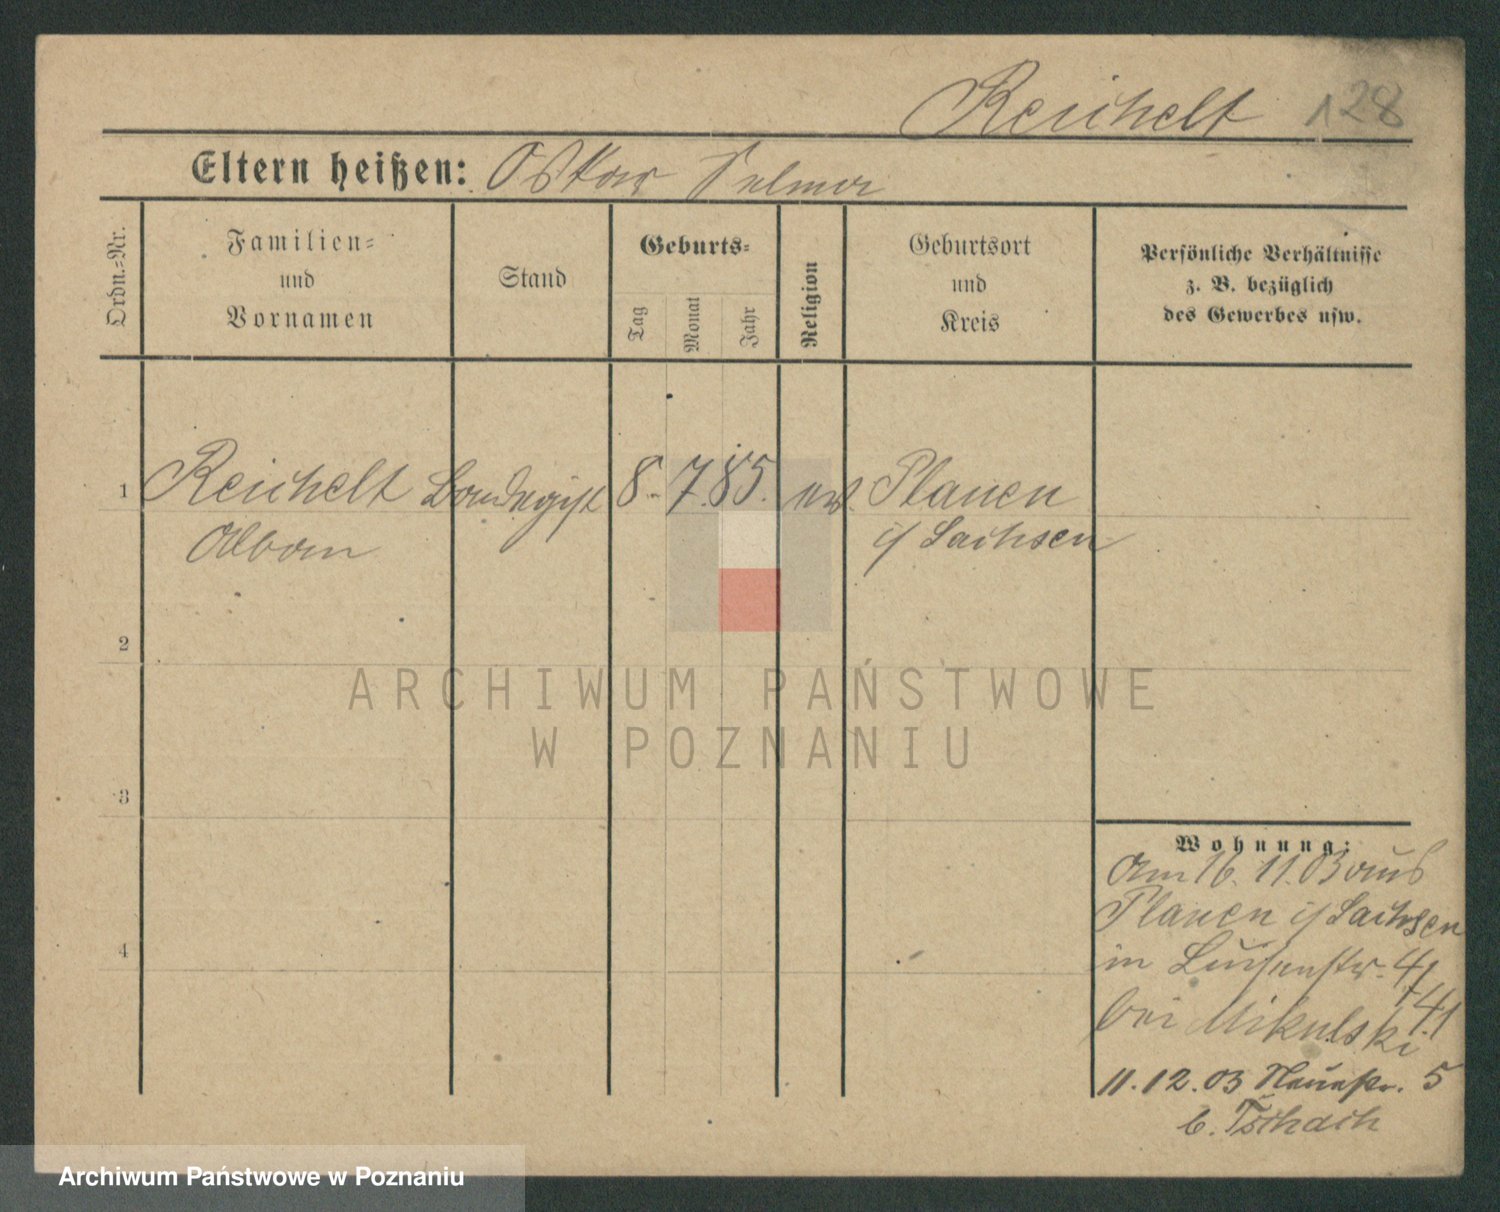 Reichelt 128
Eltern heißen: Oskar Selma
Ordn.-Nr.
Familien-
und
Vornamen
Stand
Geburts-
Tag
Monat
Jahr
Religion
Geburtsort
und
Kreis
Persönliche Verhältnisse
z. B. bezüglich
des Gewerbes usw.
1 Reichelt 8. 7. 85. ev. Plauen
Alban i/ Sachsen
2
3
4
ARCHIWUM PAŃSTWOWE
W POZNANIU
Wohnung:
Am 16. 11. 03 aus
Plauen i/ Sachsen
in Luisenstr. 4/
bei Mikulski
11.12.03 Neuestr. 5
b. Tschach
Archiwum Państwowe w Poznaniu